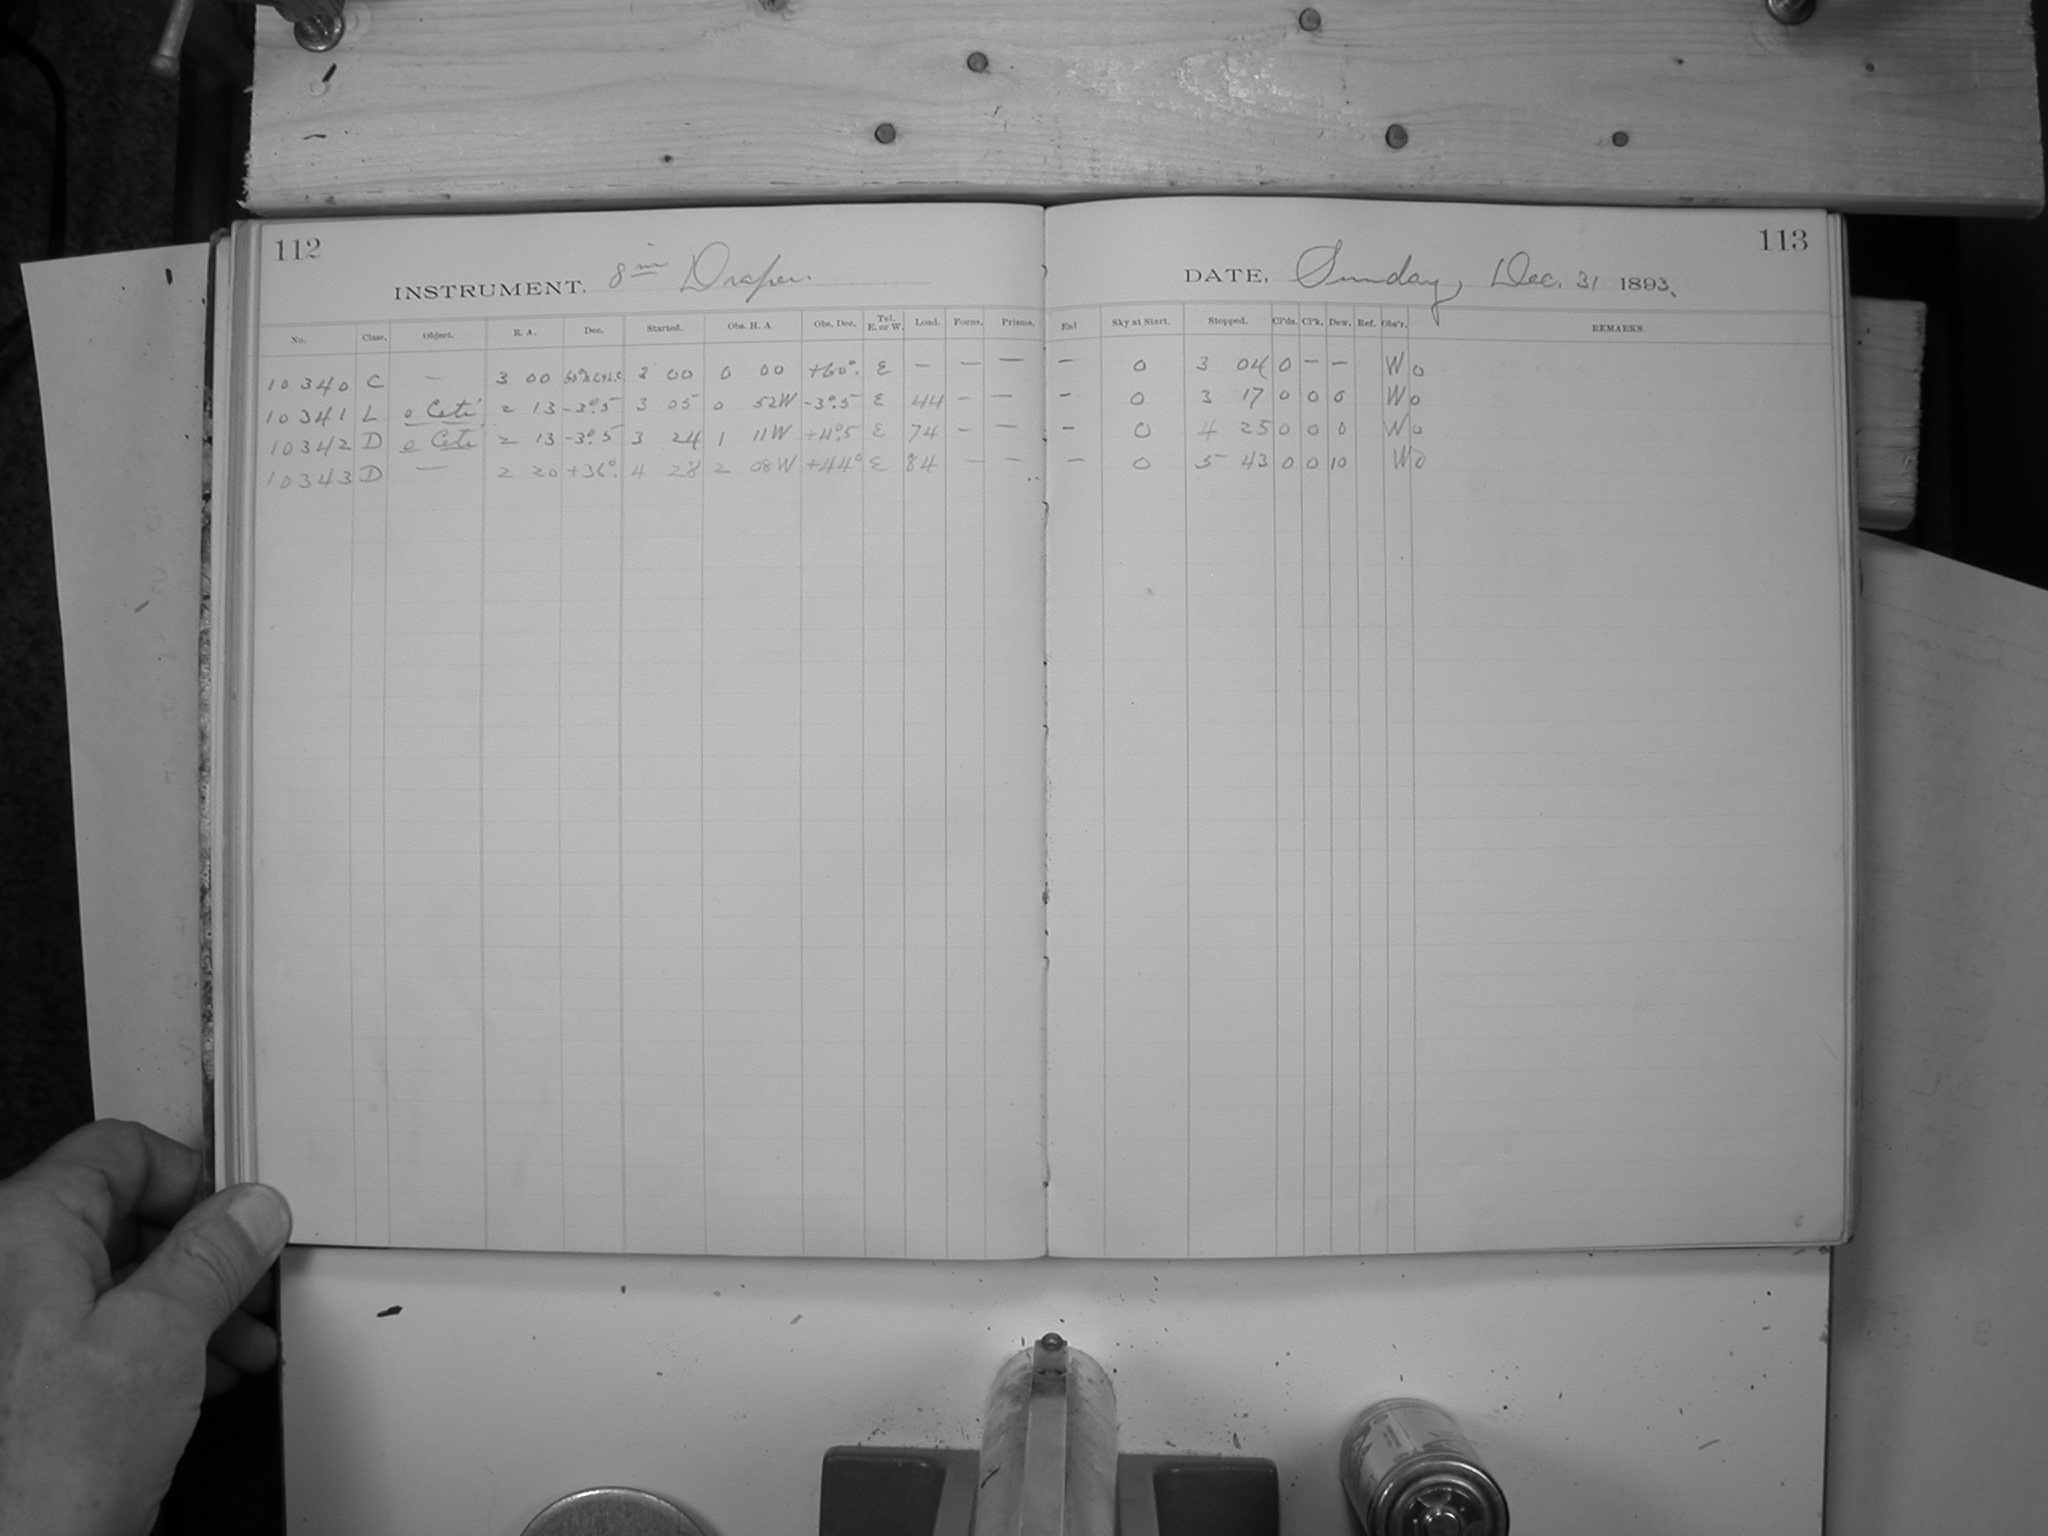 112
INSTRUMENT. 8 in Draper.
No. Class. Object. R. A. Dec. Started. Obs. H. A. Obs. Dec. Tel. E. or W. Load. Focus. Prisms.
10340 C — 3 00 3 00 0 00 +60°. E — — —
10341 L o Ceti 2 13 -3°.5 3 05 0 52W -3°.5 E 44 — —
10342 D o Ceti 2 13 -3°.5 3 24 1 11W +4°.5 E 74 — —
10343 D — 2 20 +36°. 4 28 2 08W +44° E 84 — —
113
DATE, Sunday, Dec. 31 1893.
Exl Sky at Start. Stopped. Cl'ds. Cl'k. Dew. Ref. Obs'r. REMARKS.
— 0 3 04 0 — — W 0
— 0 3 17 0 0 0 W 0
— 0 4 25 0 0 0 W 0
— 0 5 43 0 0 10 W 0